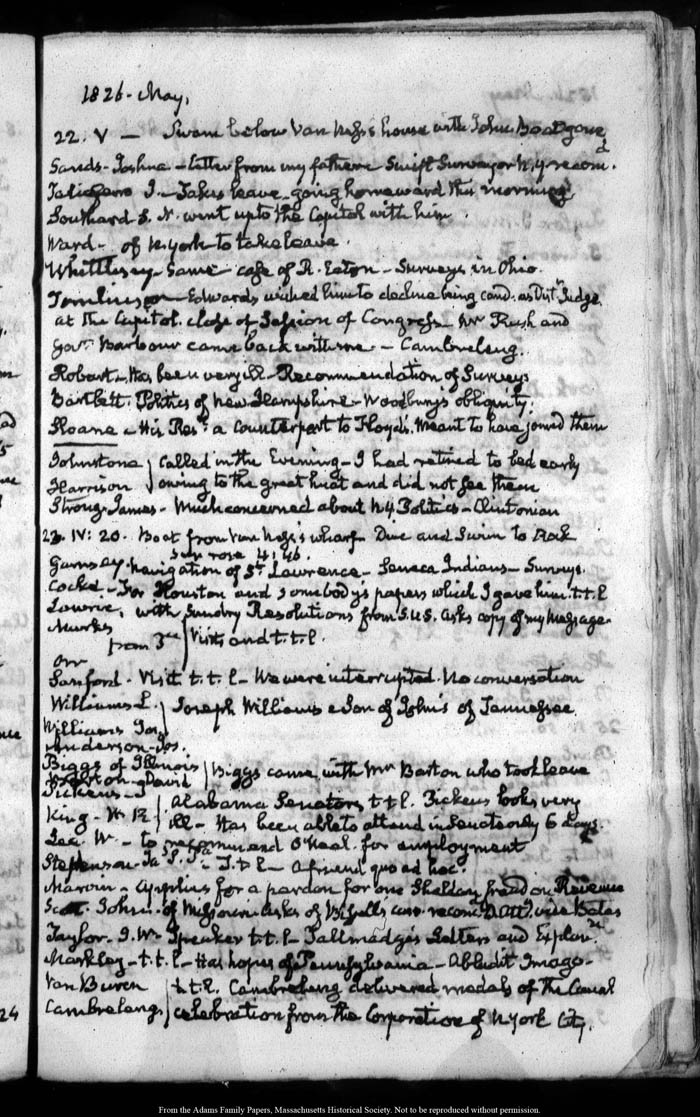 1826- May.
22. V — Swam below Van Ness's house with John. Boat gone
Sands- Joshua - Letter from my father Swift Surveyor N.Y. recomd.
Taliaferro J. - Takes leave - going homeward this morning
Southard S. N. went up to the Capitol with him.
Ward - of N. York to take leave.
Whittlesey - Same case of R. Eaton - Surveys in Ohio.
Tomlinson - Edwards wished him to decline being cand. as Dist. Judge
at the Capitol. close of Session of Congress. Mr Rush and
Govr. Barbour came back with me - Cambreleng.
Robert - Has been very ill - Recommendation of Surveys
Bartlett. Politics of New Hampshire - Woodbury's obliquity.
Sloane - His Res: a Counterpart to Floyd's. Meant to have joined them
Johnstone } Called in the Evening - I had retired to bed early
Harrison } owing to the great heat and did not see them
Strong. James - Much concerned about N.Y. Politics - Clintonian
23. IV: 20. Boat from Van Ness's wharf Dive and Swim to Rock
Sun rose 4:46.
Gurnsey - Navigation of St. Lawrence - Seneca Indians - Surveys.
Cocke - For Houston and somebody's papers which I gave him. t.t.l
Lowrie, with Sundry Resolutions from S.U.S. asks copy of my Message.
Marks
from } Visits and t.t.l.
Orr
Sanford - Visit t.t.l - We were interrupted. No conversation
Williams L. } Joseph Williams a Son of John's of Tennessee
Williams Jos
Anderson - Jos.
Biggs of Illinois } Biggs came with Mr Barton who took leave
Barton - David
Pickens - I } Alabama Senators t.t.l. Pickens looks very
King - W. R } ill - Has been able to attend in Senate only 6 Days.
Lee. W. - to recommend O'Neal. for employment
Stephenson - Ja S. Pa: - T.t.l - A friend quoad hoc.
Marvin - Applies for a pardon for one Sheldon fraud on Revenue
Scott. John. of Missouri asks of Bissell's case recomd. D. Att. vice Bates
Taylor - J. W. Speaker t.t.l - Tallmadge's Letters and Explann.
Markley - t.t.l - Has hopes of Pennsylvania - Abludit Imago -
Van Buren } t.t.l. Cambreleng delivered medals of the Canal
Cambreleng } celebration from the Corporation of N. York City.
24
From the Adams Family Papers, Massachusetts Historical Society. Not to be reproduced without permission.